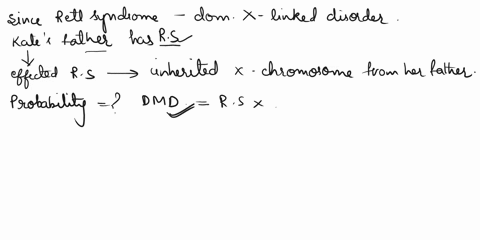 Since Rett syndrome - dom. X-linked disorder.
Kate's father has R.S
effected R.S → inherited x-chromosome from her father.
Probability = ? DMD = R.S x